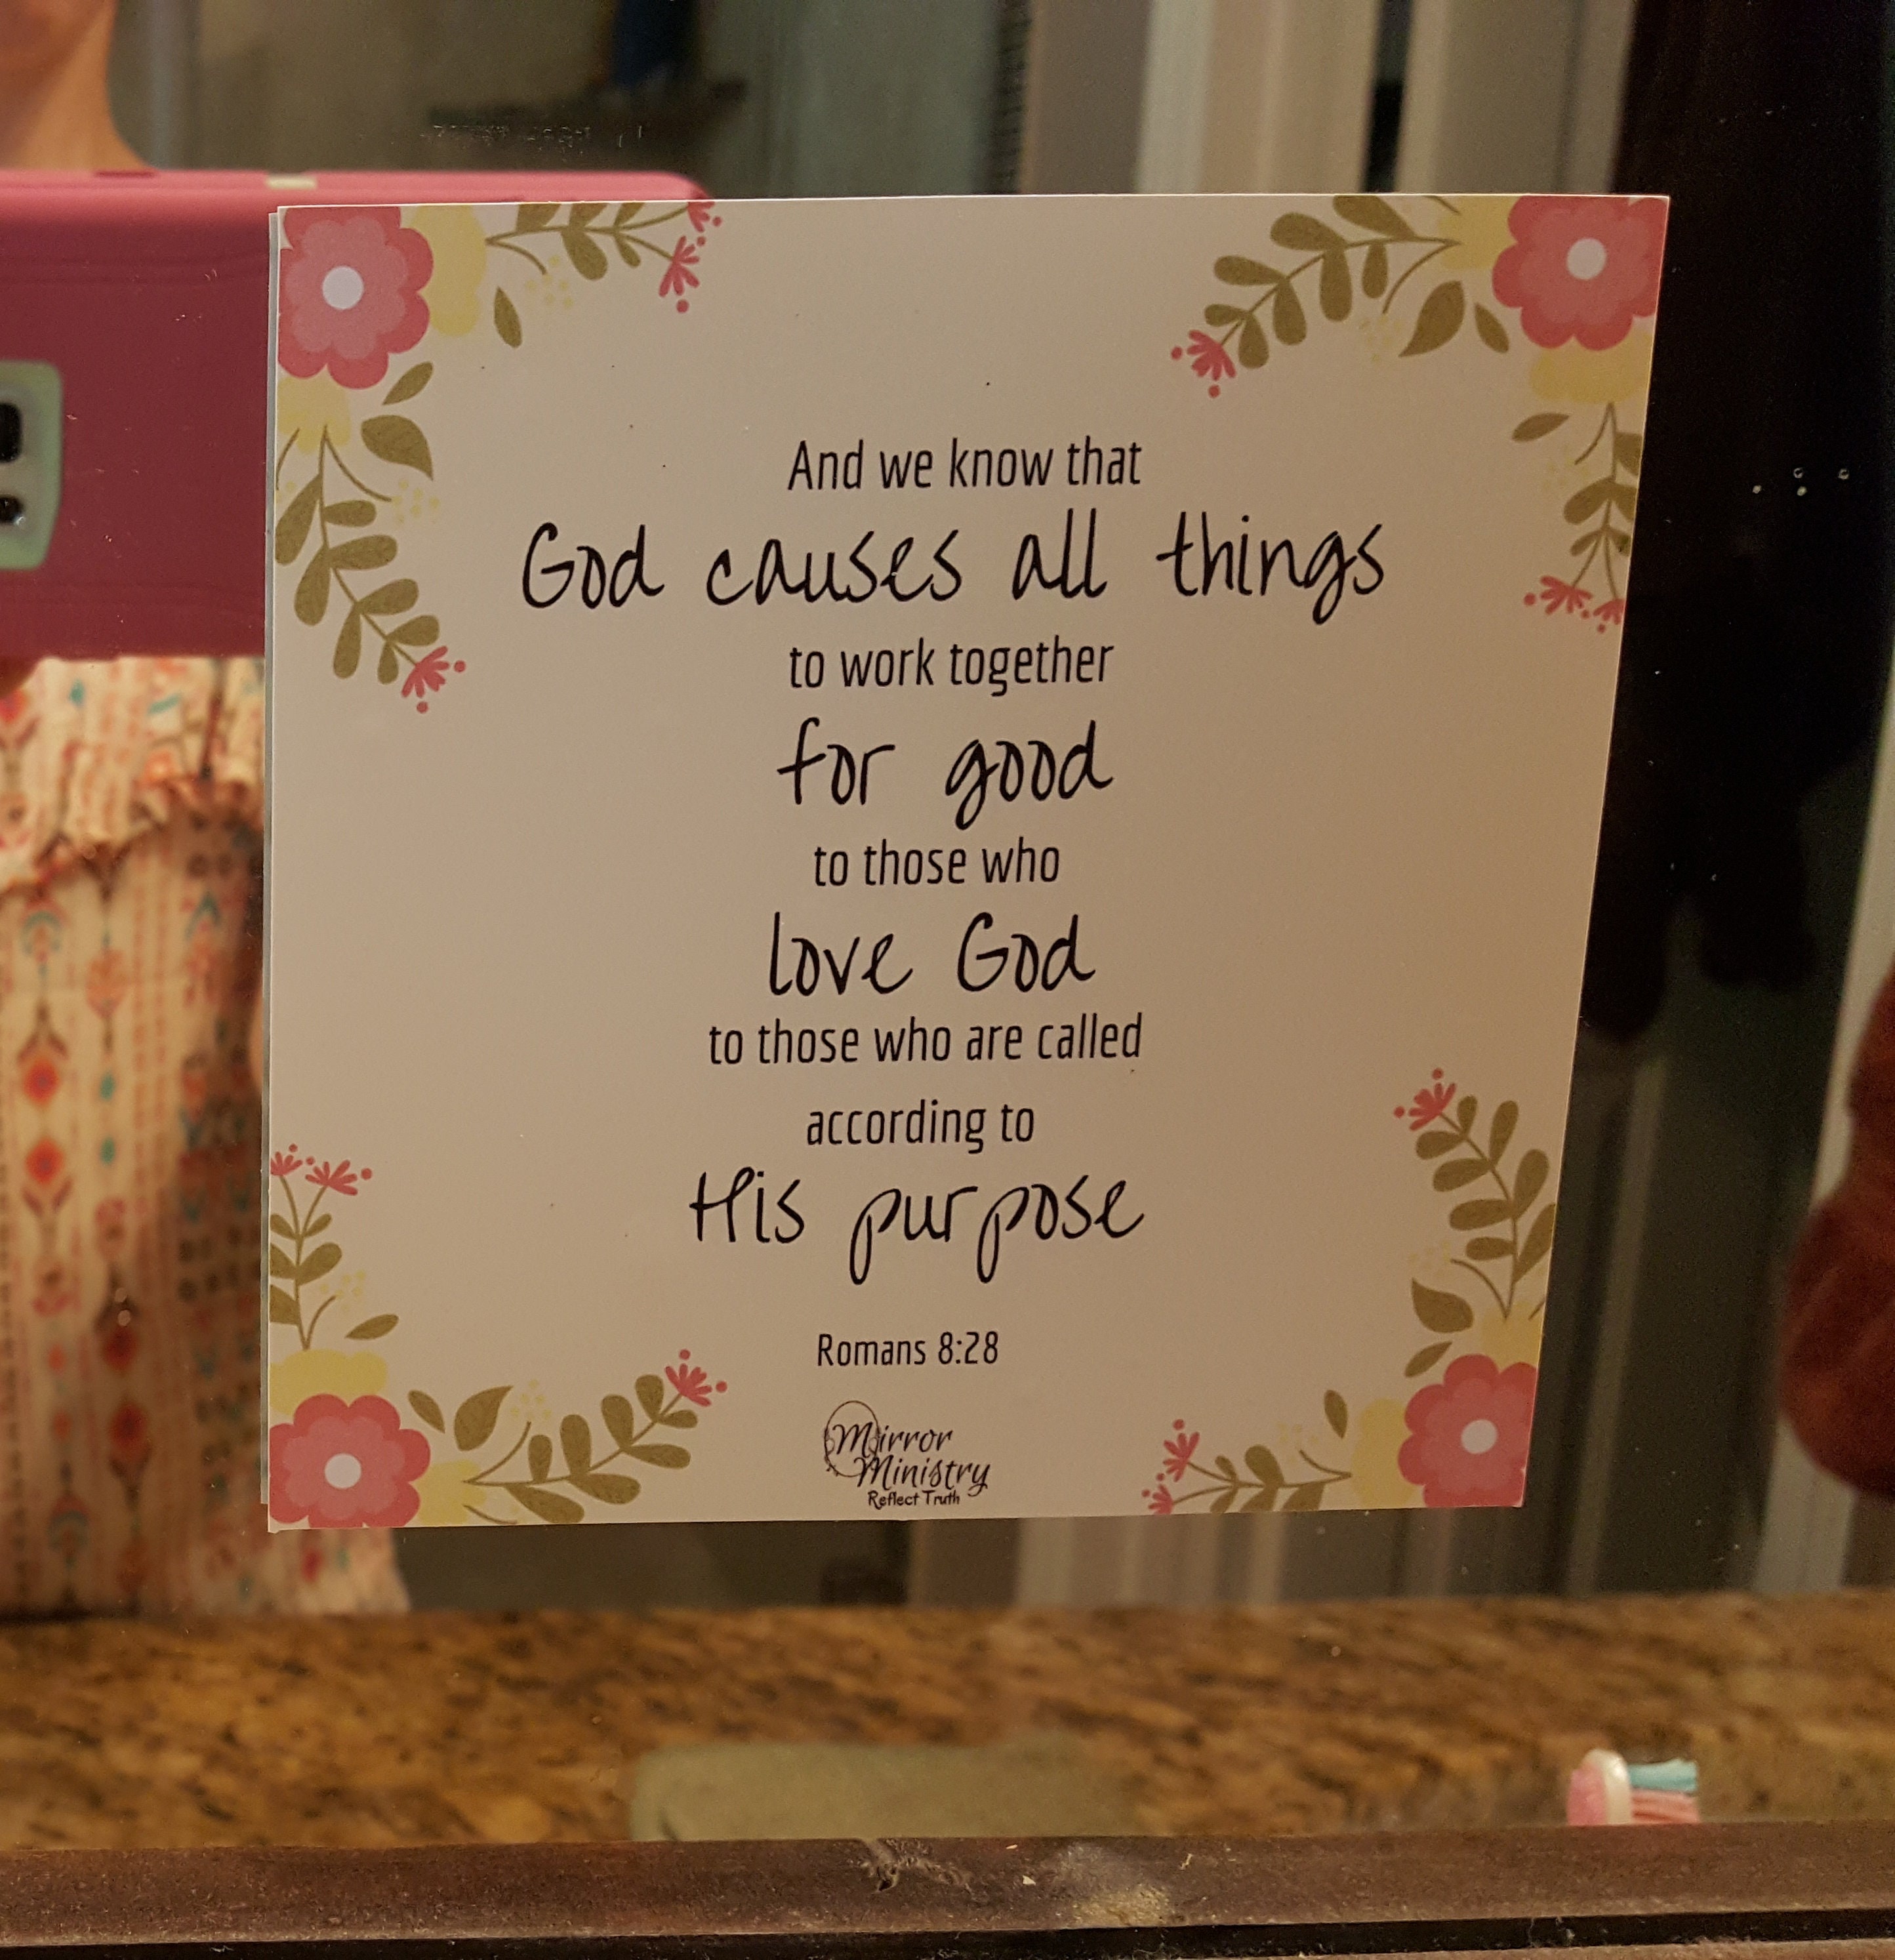 And we know that
God causes all things
to work together
for good
to those who
love God
to those who are called
according to
His purpose
Romans 8:28
Mirror
Ministry
Reflect Truth